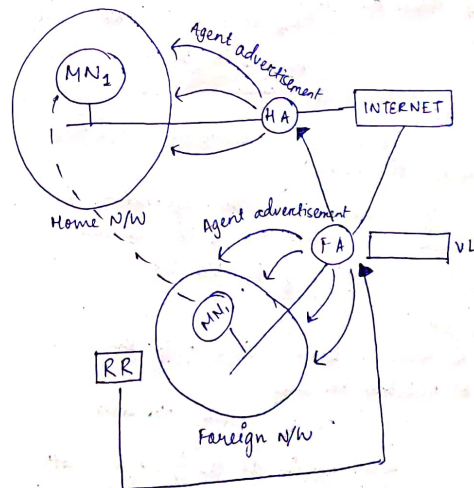 Agent advertisement
MN1
HA
INTERNET
Home N/W
Agent advertisement
FA
VL
MN1
RR
Foreign N/W